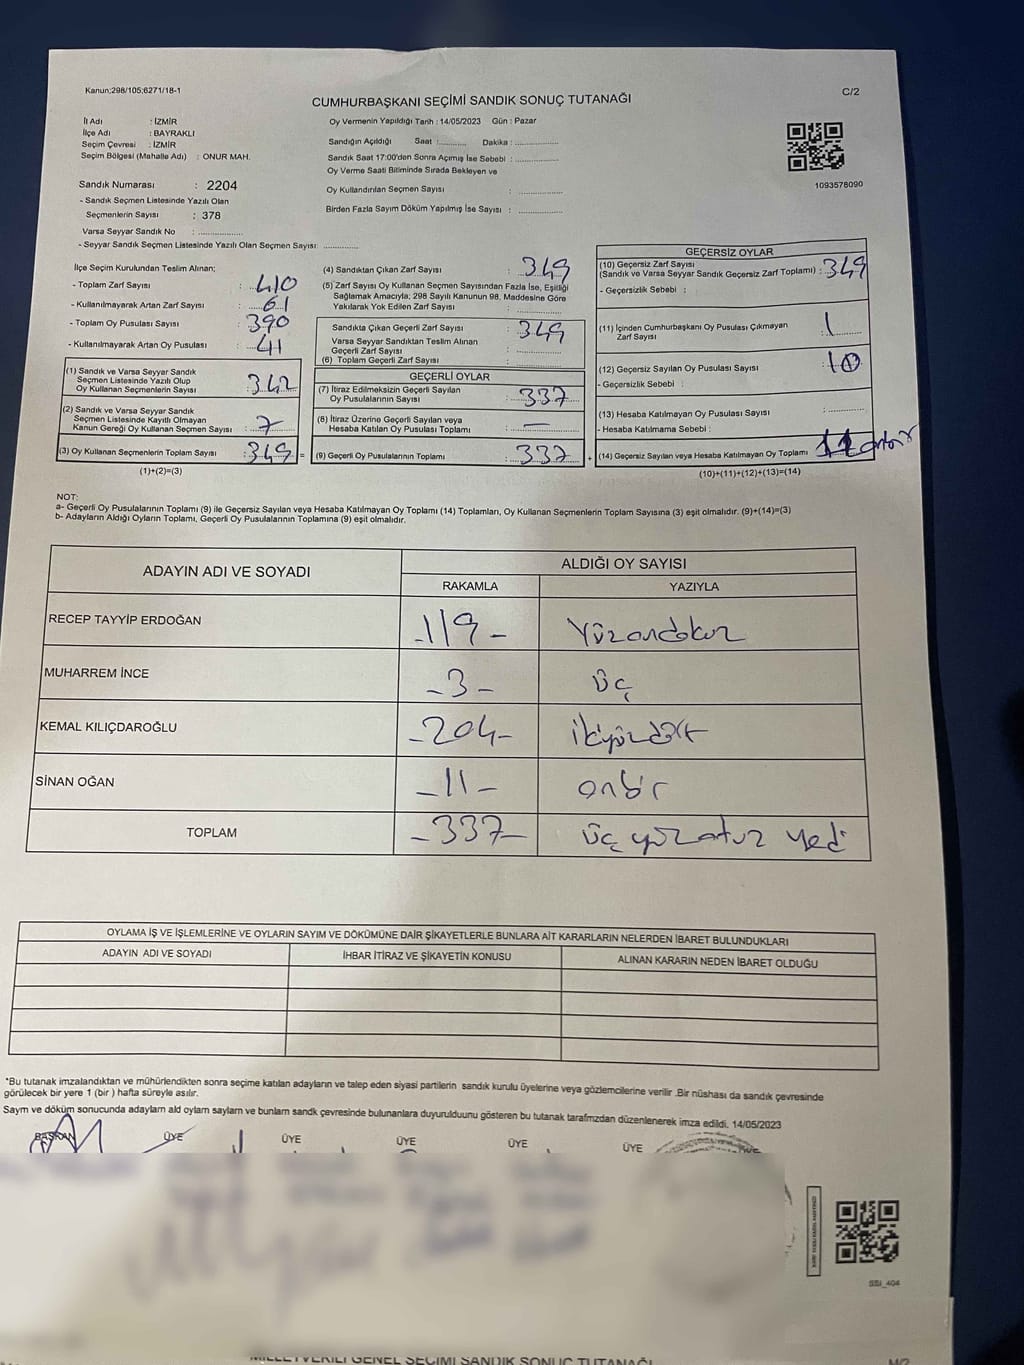 Kanun;298/105;6271/18-1
C/2
CUMHURBAŞKANI SEÇİMİ SANDIK SONUÇ TUTANAĞI
İl Adı : İZMİR
İlçe Adı : BAYRAKLI
Seçim Çevresi : İZMİR
Seçim Bölgesi (Mahalle Adı) : ONUR MAH.
Sandık Numarası : 2204
- Sandık Seçmen Listesinde Yazılı Olan
Seçmenlerin Sayısı : 378
Varsa Seyyar Sandık No : ............
- Seyyar Sandık Seçmen Listesinde Yazılı Olan Seçmen Sayısı: ............
Oy Vermenin Yapıldığı Tarih : 14/05/2023 Gün : Pazar
Sandığın Açıldığı Saat :.......... Dakika : ..............
Sandık Saat 17:00'den Sonra Açımış İse Sebebi : ..............
Oy Verme Saati Bitiminde Sırada Bekleyen ve
Oy Kullandırılan Seçmen Sayısı : ..............
Birden Fazla Sayım Döküm Yapılmış İse Sayısı : ..............
1093578090
İlçe Seçim Kurulundan Teslim Alınan;
- Toplam Zarf Sayısı : 410
- Kullanılmayarak Artan Zarf Sayısı : 61
- Toplam Oy Pusulası Sayısı : 390
- Kullanılmayarak Artan Oy Pusulası : 41
(1) Sandık ve Varsa Seyyar Sandık
Seçmen Listesinde Yazılı Olup
Oy Kullanan Seçmenlerin Sayısı : 342
(2) Sandık ve Varsa Seyyar Sandık
Seçmen Listesinde Kayıtlı Olmayan
Kanun Gereği Oy Kullanan Seçmen Sayısı : 7
(3) Oy Kullanan Seçmenlerin Toplam Sayısı : 349 =
(1)+(2)=(3)
(4) Sandıktan Çıkan Zarf Sayısı : 349
(5) Zarf Sayısı Oy Kullanan Seçmen Sayısından Fazla İse, Eşitliği
Sağlamak Amacıyla; 298 Sayılı Kanunun 98, Maddesine Göre
Yakılarak Yok Edilen Zarf Sayısı : ..............
Sandıkta Çıkan Geçerli Zarf Sayısı : 349
Varsa Seyyar Sandıktan Teslim Alınan
Geçerli Zarf Sayısı : ..............
(6) Toplam Geçerli Zarf Sayısı : ..............
GEÇERLİ OYLAR
(7) İtiraz Edilmeksizin Geçerli Sayılan
Oy Pusulalarının Sayısı : 337
(8) İtiraz Üzerine Geçerli Sayılan veya
Hesaba Katılan Oy Pusulası Toplamı : —
(9) Geçerli Oy Pusulalarının Toplamı : 337 +
GEÇERSİZ OYLAR
(10) Geçersiz Zarf Sayısı
(Sandık ve Varsa Seyyar Sandık Geçersiz Zarf Toplamı) : 349
- Geçersizlik Sebebi :
(11) İçinden Cumhurbaşkanı Oy Pusulası Çıkmayan
Zarf Sayısı : 1
(12) Geçersiz Sayılan Oy Pusulası Sayısı : 10
- Geçersizlik Sebebi :
(13) Hesaba Katılmayan Oy Pusulası Sayısı : ............
- Hesaba Katılmama Sebebi :
(14) Geçersiz Sayılan veya Hesaba Katılmayan Oy Toplamı
(10)+(11)+(12)+(13)=(14)
NOT:
a- Geçerli Oy Pusulalarının Toplamı (9) ile Geçersiz Sayılan veya Hesaba Katılmayan Oy Toplamı (14) Toplamları, Oy Kullanan Seçmenlerin Toplam Sayısına (3) eşit olmalıdır. (9)+(14)=(3)
b- Adayların Aldığı Oyların Toplamı, Geçerli Oy Pusulalarının Toplamına (9) eşit olmalıdır.
ADAYIN ADI VE SOYADI
ALDIĞI OY SAYISI
RAKAMLA YAZIYLA
RECEP TAYYİP ERDOĞAN -119- Yüzondokuz
MUHARREM İNCE -3- üç
KEMAL KILIÇDAROĞLU -204- ikiyüzdört
SİNAN OĞAN -11- onbir
TOPLAM -337- üç yüzotuz yedi
OYLAMA İŞ VE İŞLEMLERİNE VE OYLARIN SAYIM VE DÖKÜMÜNE DAİR ŞİKAYETLERLE BUNLARA AİT KARARLARIN NELERDEN İBARET BULUNDUKLARI
ADAYIN ADI VE SOYADI İHBAR İTİRAZ VE ŞİKAYETİN KONUSU ALINAN KARARIN NEDEN İBARET OLDUĞU
*Bu tutanak imzalandıktan ve mühürlendikten sonra seçime katılan adayların ve talep eden siyasi partilerin sandık kurulu üyelerine veya gözlemcilerine verilir .Bir nüshası da sandık çevresinde
görülecek bir yere 1 (bir ) hafta süreyle asılır.
Saym ve döküm sonucunda adaylarn ald oylarn saylarn ve bunlarn sandk çevresinde bulunanlara duyurulduunu gösteren bu tutanak tarafmzdan düzenlenerek imza edildi. 14/05/2023
BAŞKAN ÜYE ÜYE ÜYE ÜYE ÜYE
SSI_404
MİLLETVEKİLİ GENEL SEÇİMİ SANDIK SONUÇ TUTANAĞI
M/2